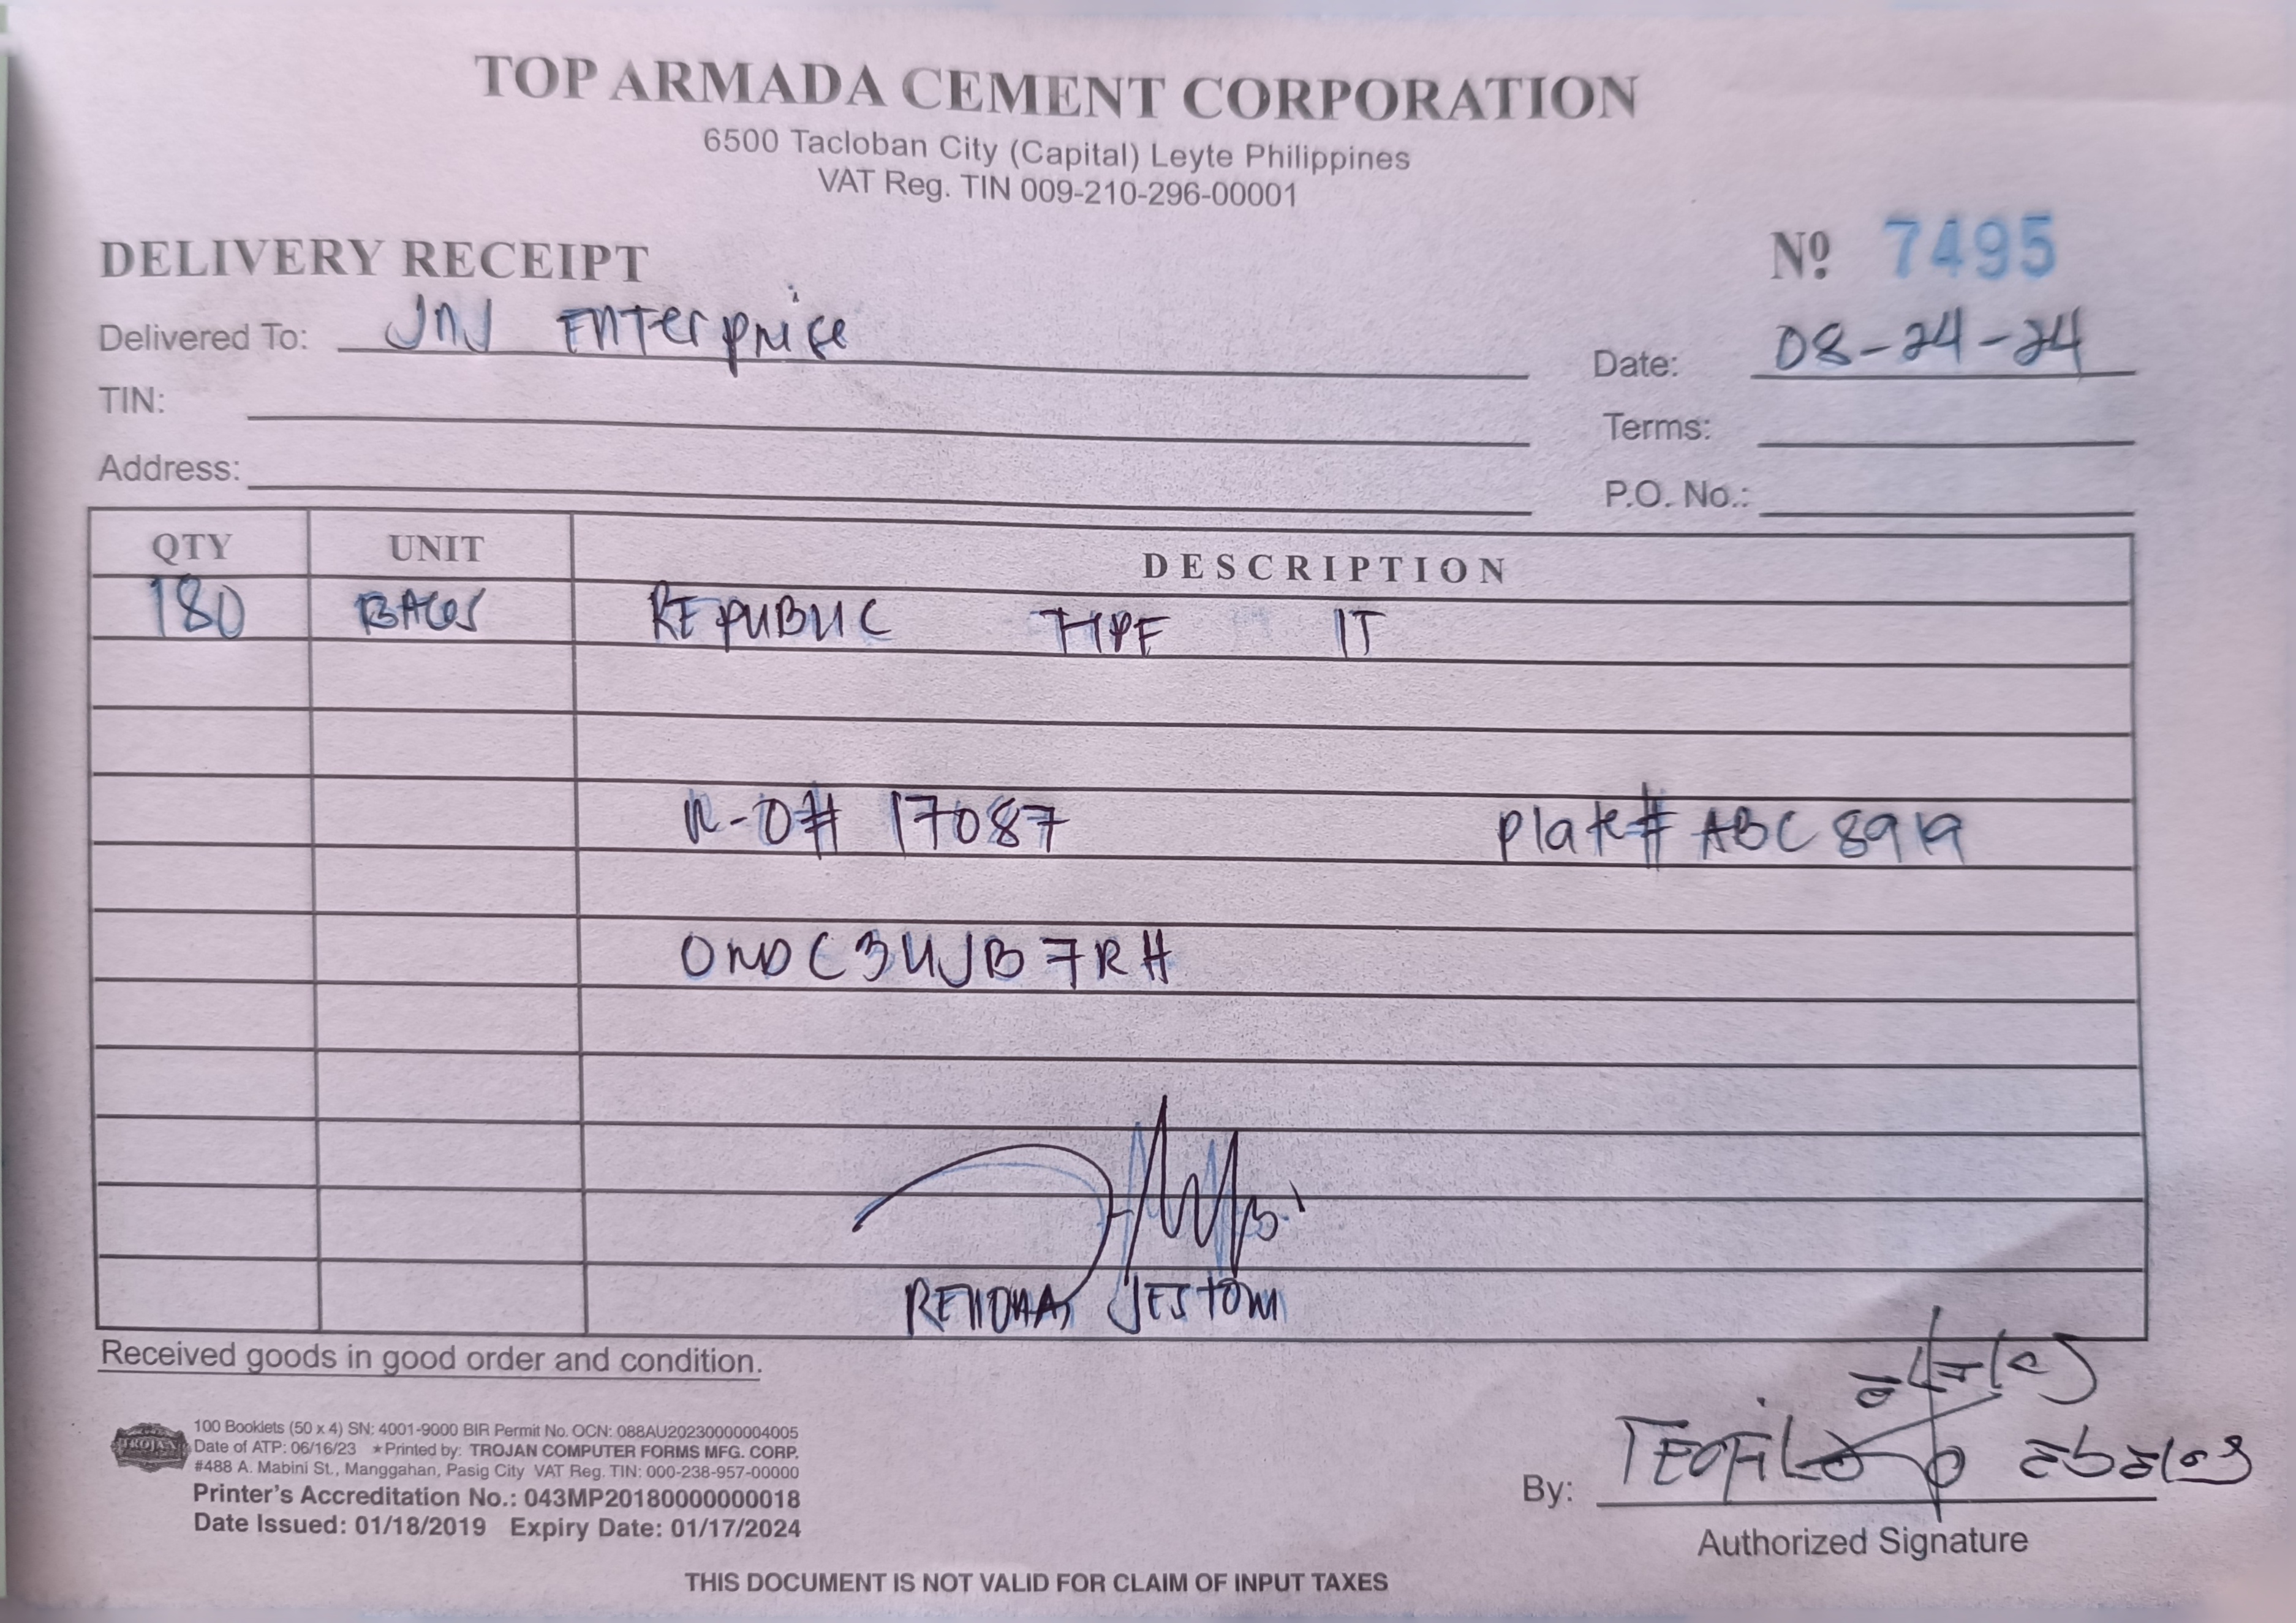 TOP ARMADA CEMENT CORPORATION
6500 Tacloban City (Capital) Leyte Philippines
VAT Reg. TIN 009-210-296-00001
DELIVERY RECEIPT
Nº 7495
Delivered To: JNJ Enterprise
Date: 08-24-24
TIN:
Terms:
Address:
P.O. No.:
QTY UNIT DESCRIPTION
180 BAGS REPUBLIC TYPE 1T
W-O# 17087 Plate# ABC 8919
JESTONI
Received goods in good order and condition.
TROJAN
100 Booklets (50 x 4) SN: 4001-9000 BIR Permit No. OCN: 088AU20230000004005
Date of ATP: 06/16/23 ★Printed by: TROJAN COMPUTER FORMS MFG. CORP.
#488 A. Mabini St., Manggahan, Pasig City VAT Reg. TIN: 000-238-957-00000
Printer's Accreditation No.: 043MP20180000000018
Date Issued: 01/18/2019 Expiry Date: 01/17/2024
By: TEOFILO abalos
Authorized Signature
THIS DOCUMENT IS NOT VALID FOR CLAIM OF INPUT TAXES